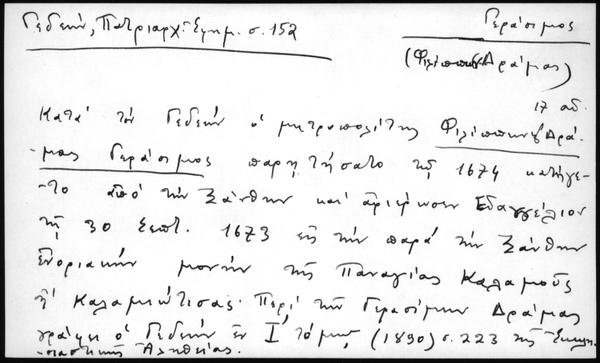 Γεδεών, Πατριαρχ. Εφημ. σ. 152
Γεράσιμος
(Φιλίππων & Δράμας)
17 αι.
Κατά τον Γεδεών ο μητροπολίτης Φιλίππων & Δρά-
μας Γεράσιμος παρητήσατο τῇ 1674 κατήγε-
-το από την Ξάνθην και αφιέρωσεν Εὐαγγέλιον
τῇ 30 Σεπτ. 1673 εις την παρά την Ξάνθην
ἐνοριακήν μονήν της Παναγίας Καλαμούς
ἤ Καλαμιώτισσας. Περί της Γερασίμου Δράμας
γράφει ο Γεδεών ἐν Ι' τόμῳ, (1890) σ. 223 της Εκκλη-
-σιαστικής Ἀληθείας.